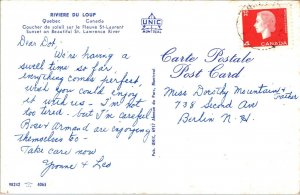 RIVIERE DU LOUP
Quebec Canada
Coucher de soleil sur le Fleuve St-Laurent
Sunset on Beautiful St. Lawrence River
UNIC
MONTREAL
Dear Dot,
We're having a
swell time so far
everything comes perfect
wish you could enjoy
it with us - I'm not
too tired - but I'm careful
Rose & Armand are enjoying
themselves so -
Take care now
Yvonne & Leo
98252 6063
Carte Postale
Post Card
CANADA
Miss Dorothy Mountain &
Father
738 Second Ave
Berlin N.H.